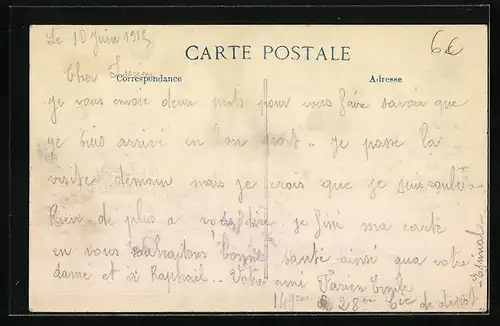 Le 10 Juin 1915
6€
CARTE POSTALE
Cher Lucien
Correspondance
Adresse
je vous envoie deux mots pour vous faire savoir que
je suis arrivé en bon port.. je passe la
visite demain mais je crois que je suis
Rien de plus a votre dire je fini ma carte
en vous souhaitons bonne santé ainsi qua votre
dame et a Raphaël.. Votre ami Emile
149em 28em Cie de dépot
a Epinal